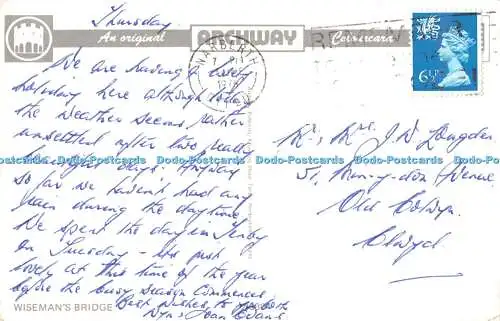 Thursday
An original ARCHWAY Colourcard
NARBERTH
6½P
We are having a lovely
holiday here although today
the weather seems rather
unsettled after two really
days, Anyway
so far we havent had any
rain during the daytime
We spent the day in Tenby
on Tuesday - its just
lovely at this time of the year
before the busy season commences
Best wishes to you both
Joan Evans
WISEMAN'S BRIDGE
Mr & Mrs J. W. Longden
51, Avenue
Old Colwyn
Clwyd
Dodo-Postcards Dodo-Postcards Dodo-Postcards Dodo-Postcards Dodo-Postcards Dodo-Postcards